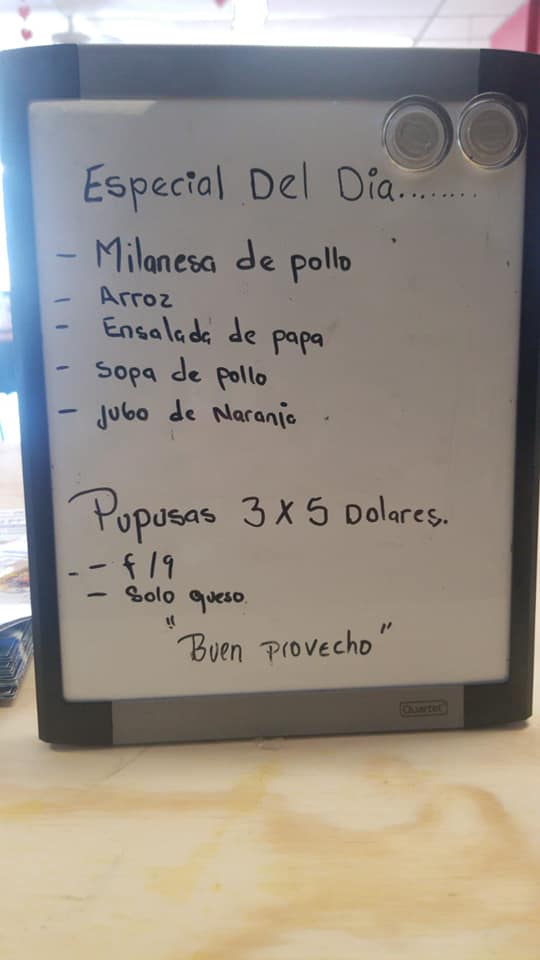 Especial Del Dia........
- Milanesa de pollo
- Arroz
- Ensalada de papa
- Sopa de pollo
- Jugo de Naranja
Pupusas 3 x 5 Dolares.
-- f/q
- Solo queso.
"Buen provecho"
Quartet